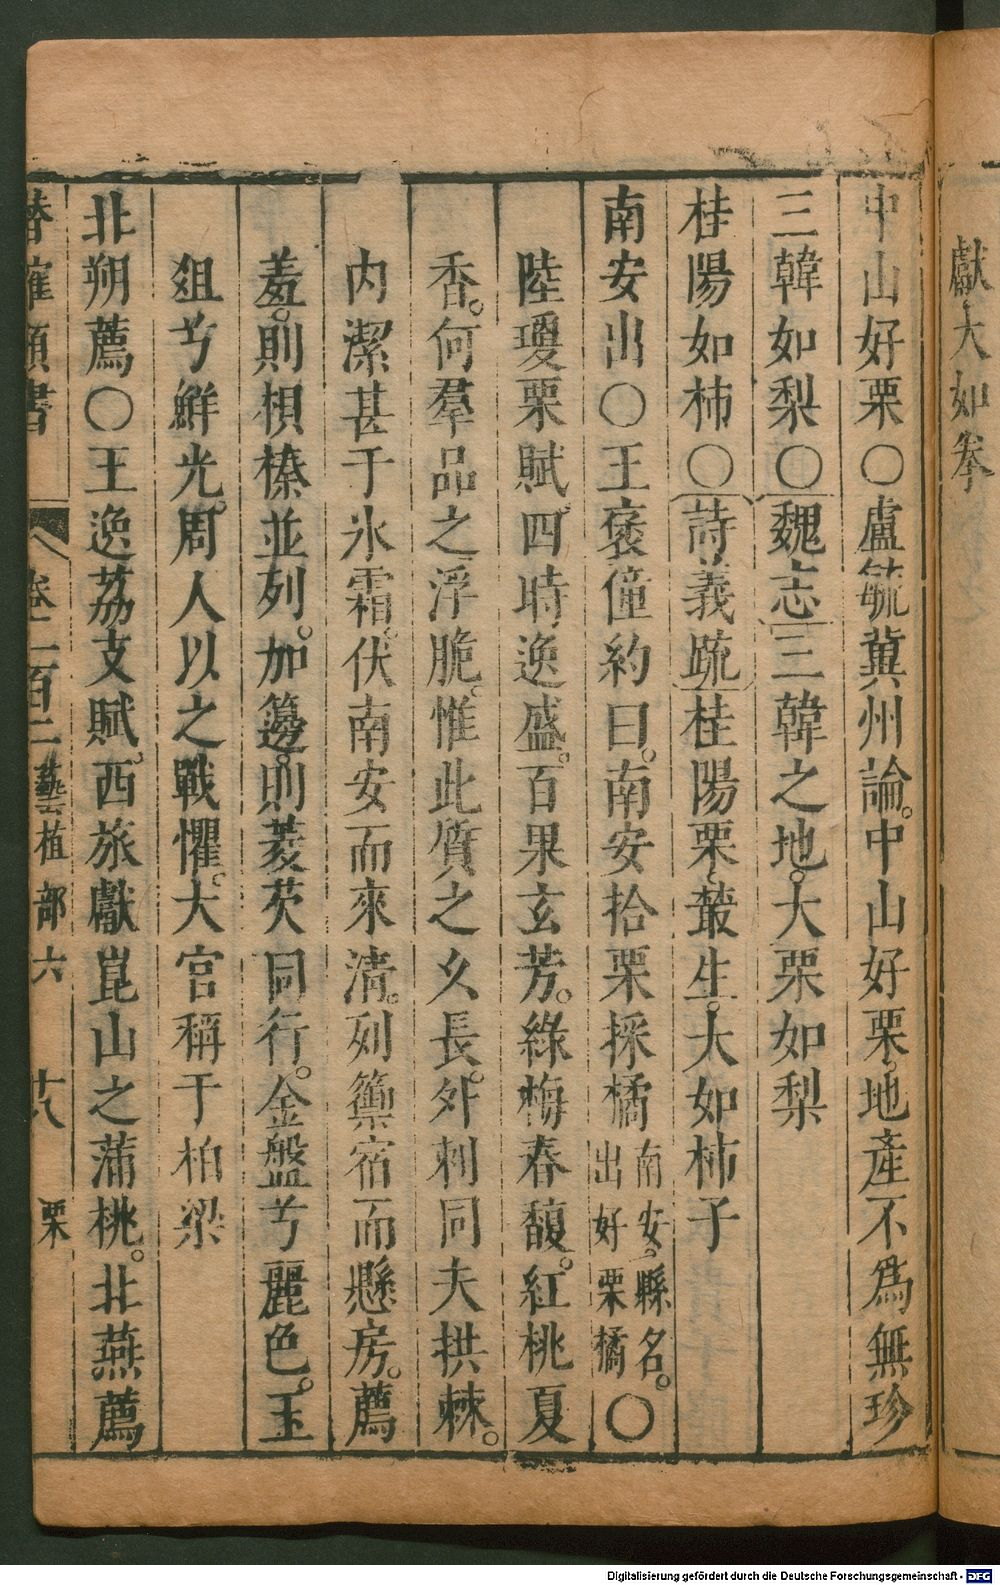 獻大如拳
中山好栗○盧毓冀州論。中山好栗。地產不為無珍
三韓如梨○魏志三韓之地。大栗如梨
桂陽如柿○詩義疏桂陽栗、叢生。大如柿子
南安出○王褒僮約曰。南安拾栗採橘南安。縣名。出好栗橘○
陸瓊栗賦。四時逸盛。百果玄芳。綠梅春馥。紅桃夏
香。何羣品之浮脆。惟此質之久長。外刺同夫拱棘。
內潔甚于氷霜。伏南安而來清。列籞宿而懸房。薦
羞。則椇榛並列。加籩。則菱芡同行。金盤兮麗色。玉
俎兮鮮光。周人以之戰懼。大官稱于柏梁
北朔薦○王逸荔支賦。西旅獻崑山之蒲桃。北燕薦
潛確類書 卷二百二藝植部六 廿八 栗
Digitalisierung gefördert durch die Deutsche Forschungsgemeinschaft - DFG